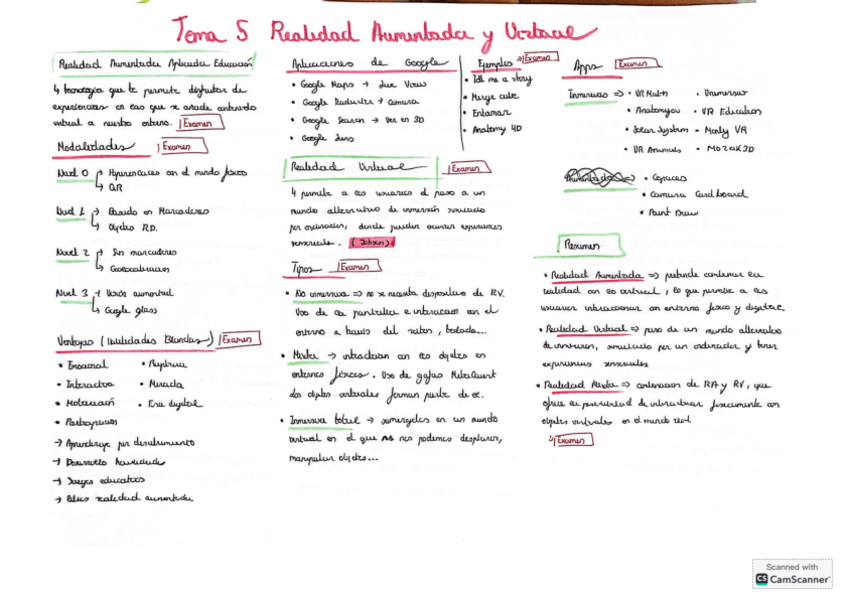 Tema 5 Realidad Aumentada y Virtual
Realidad Aumentada Aplicada Educación
↳ tecnología que te permite disfrutar de
experiencias en las que se añade contenido
virtual a nuestro entorno. Examen
Modalidades Examen
Nivel 0 → Hiperenlaces con el mundo físico
↳ QR
Nivel 1 → Basado en Marcadores
↳ Objetos R.D.
Nivel 2 → Sin marcadores
↳ Geolocalización
Nivel 3 → Visión aumentad
↳ Google glass
Ventajas (Habilidades Blandas) Examen
• Emocional
• Interactiva
• Motivación
• Participación
• Ruptura
• Mirada
• Era digital
→ Aprendizaje por descubrimiento
→ Desarrollo habilidades
→ Juegos educativos
→ Libros realidad aumentada
Aplicaciones de Google
• Google Maps → Live View
• Google traductor → camara
• Google Search → Ver en 3D
• Google Lens
Ejemplos → Examen
• Tell me a story
• Merge cube
• Entamar
• Anatomy 4D
Realidad Virtual Examen
↳ permite a los usuarios el paso a un
mundo alternativo de inmersión simulado
por ordenador, donde pueden ocurrir experiencias
sensoriales.
Tipos Examen
• No inmersiva → no se necesita dispositivo de RV.
Uso de la pantalla e interacción con el
entorno a través del ratón, teclado...
• Mixta → introducen con los objetos en
entornos físicos. Uso de gafas
Los objetos virtuales forman parte de él.
• Inmersiva total → sumergirles en un mundo
virtual en el que nos podemos desplazar,
manipular objetos...
Apps Examen
Inmersivas → • VR Math
• Anatomyou
• Solar System
• VR Animals
• Universive
• VR Education
• Monly VR
• Mozaik3D
• Camara Cardboard
• Paint Draw
Resumen
• Realidad Aumentada ⇒ pretende combinar la
realidad con lo virtual, lo que permite a los
usuarios interaccionar con entorno físico y digital.
• Realidad Virtual ⇒ paso de un mundo alternativo
de inmersión, simulado por un ordenador y tener
experiencias sensoriales
• Realidad Mixta ⇒ combinación de RA y RV, que
ofrece la posibilidad de interactuar físicamente con
objetos virtuales en el mundo real
Examen
Scanned with
CS CamScanner